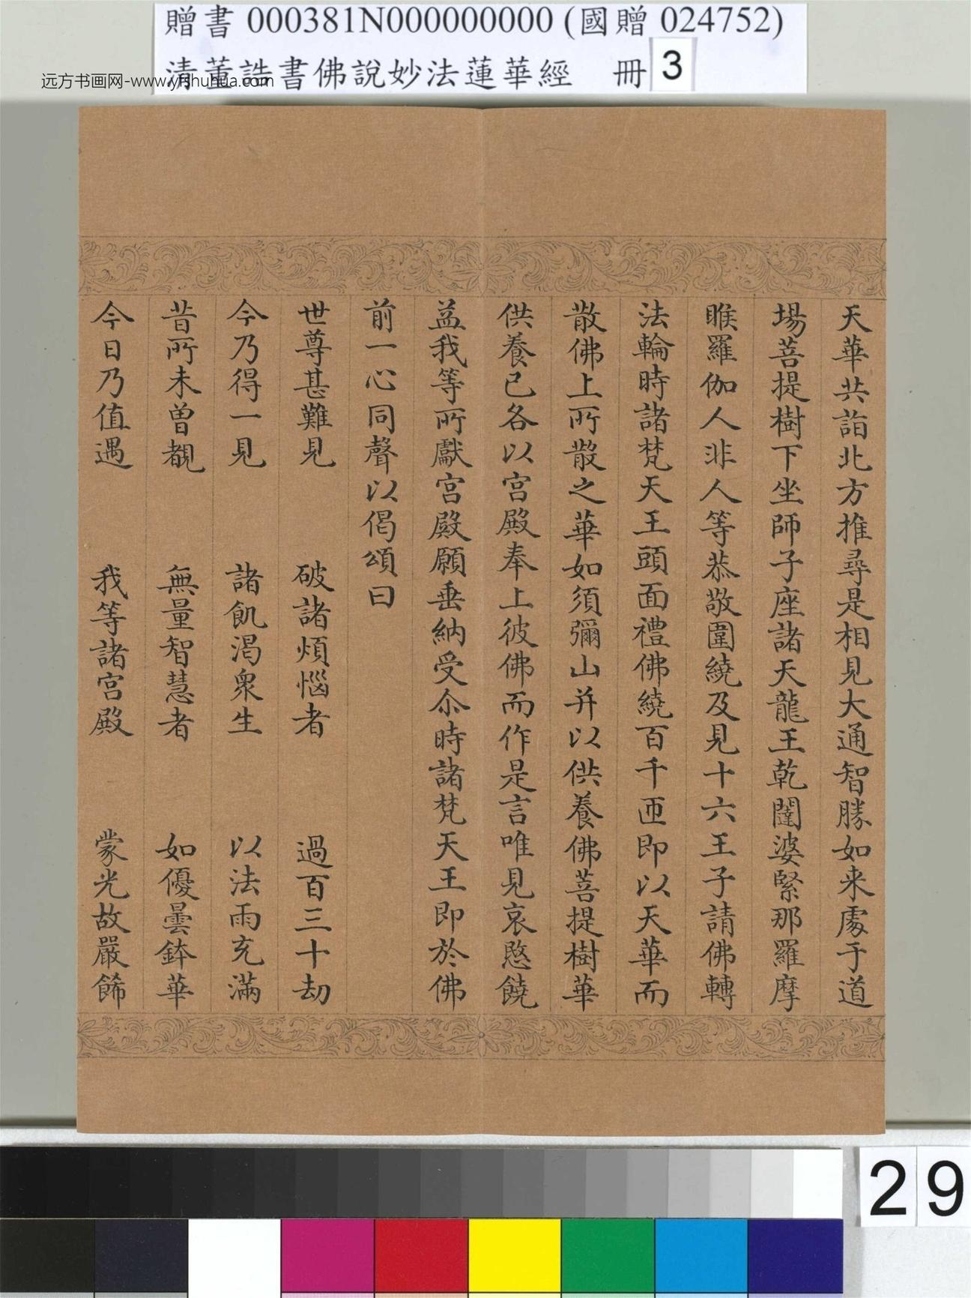 贈書 000381N000000000 (國贈 024752)
清董誥書佛說妙法蓮華經 冊 3
远方书画网-www.yfshuhua.com
天華共詣北方推尋是相見大通智勝如来處于道
場菩提樹下坐師子座諸天龍王乾闥婆緊那羅摩
睺羅伽人非人等恭敬圍繞及見十六王子請佛轉
法輪時諸梵天王頭面禮佛繞百千匝即以天華而
散佛上所散之華如須彌山并以供養佛菩提樹華
供養已各以宫殿奉上彼佛而作是言唯見哀愍饒
益我等所獻宫殿願垂納受尒時諸梵天王即於佛
前一心同聲以偈頌曰
世尊甚難見 破諸煩惱者 過百三十劫
今乃得一見 諸飢渴衆生 以法雨充滿
昔所未曽覩 無量智慧者 如優曇鉢華
今日乃值遇 我等諸宫殿 蒙光故嚴飾
29